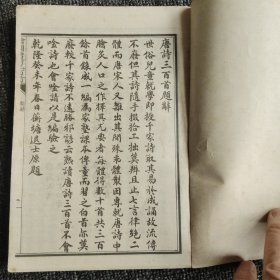 唐詩三百首題辭
世俗兒童就學即授千家詩取其易於成誦故流傳
不廢但其詩隨手掇拾工拙莫辨且止七言律絕二
體而唐宋人又雜出其間殊乖體製因專就唐詩中
膾炙人口之作擇其尤要者每體得數十首共三百
餘首錄成一編為家塾課本俾童而習之白首亦莫
廢較千家詩不遠勝耶諺云熟讀唐詩三百首不會
唫詩也會唫請以是編驗之
乾隆癸未年春日蘅塘退士原題